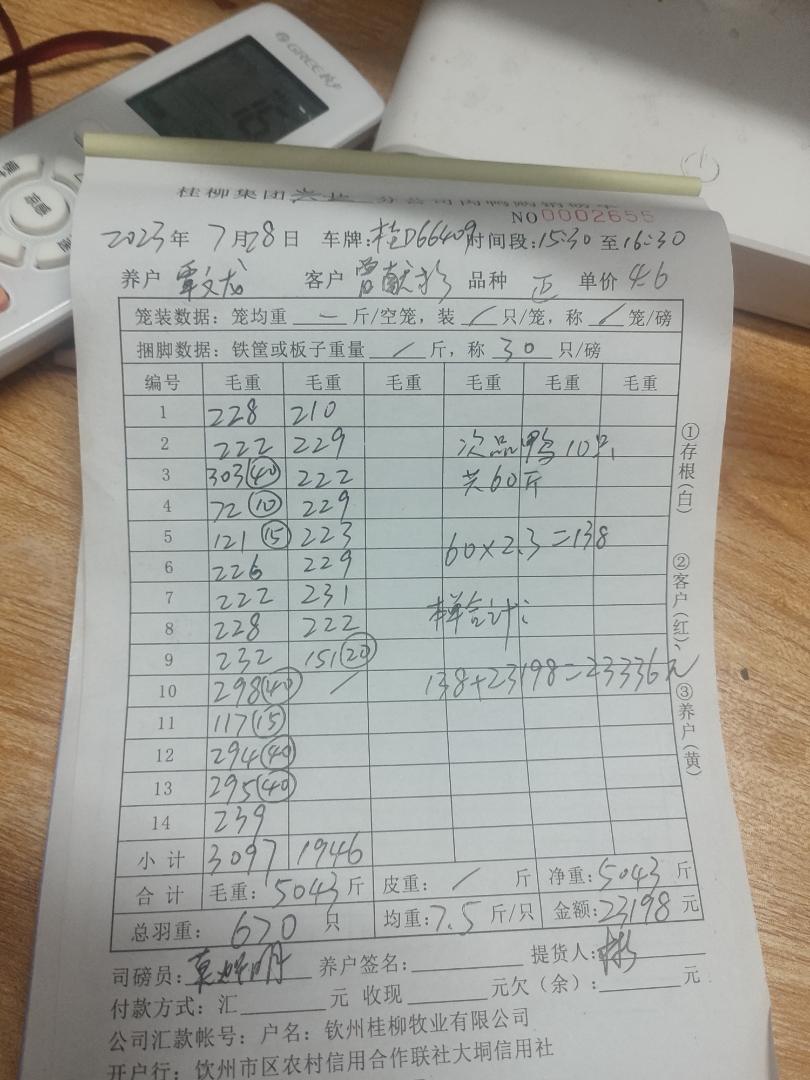 GREE格力
桂柳集团
分公司肉鸭购销磅单
NO 0002655
2023年 7月28日 车牌:桂D66409 时间段:15:30 至16:30
养户 覃文龙 客户 曾献 品种 正 单价 4.6
笼装数据:笼均重 — 斤/空笼,装 / 只/笼,称 / 笼/磅
捆脚数据:铁筐或板子重量 / 斤,称 30 只/磅
编号 毛重 毛重 毛重 毛重 毛重 毛重
1 228 210
2 222 229 次品鸭10只
3 303(40) 222 共60斤
4 72(10) 229
5 121(15) 223 60×2.3=138
6 226 229
7 222 231
8 228 222 合计:
9 232 151(20)
10 298(40) / 138+23198=23336元
11 117(15)
12 294(40)
13 295(40)
14 239
小计 3097 1946
合计 毛重:5043斤 皮重: / 斤 净重:5043斤
总羽重: 670 只 均重:7.5斤/只 金额:23198元
司磅员: 养户签名: 提货人:
付款方式:汇 元 收现 元欠(余): 元
公司汇款帐号:户名:钦州桂柳牧业有限公司
开户行:钦州市区农村信用合作联社大垌信用社
①存根(白)
②客户(红)、
③养户(黄)